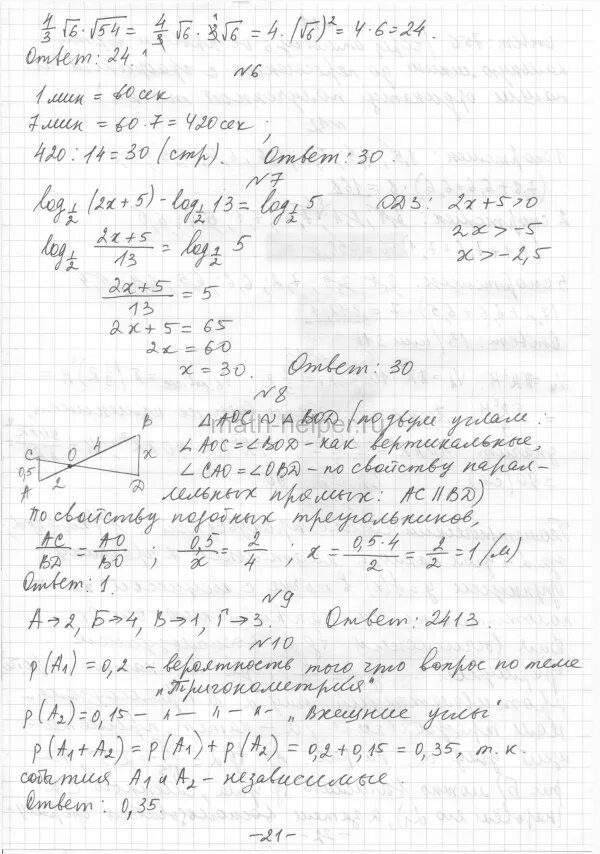 4/3 √6 · √54 = 4/3 √6 · 3√6 = 4 · (√6)² = 4 · 6 = 24.
Ответ: 24.
№6
1 мин = 60 сек
7 мин = 60 · 7 = 420 сек ;
420 : 14 = 30 (стр). Ответ: 30.
№7
log_{1/2} (2x+5) - log_{1/2} 13 = log_{1/2} 5 ОДЗ: 2x+5>0
2x > -5
log_{1/2} (2x+5)/13 = log_{1/2} 5 x > -2,5
(2x+5)/13 = 5
2x+5 = 65
2x = 60
x = 30. Ответ: 30
№8
B
C O 4 x
0,5
A 2 D
△AOC ~ △BOD (по двум углам:
math-helper.ru
∠AOC = ∠BOD - как вертикальные,
∠CAO = ∠OBD - по свойству парал-
лельных прямых: AC ∥ BD)
По свойству подобных треугольников,
AC/BD = AO/BO ; 0,5/x = 2/4 ; x = (0,5·4)/2 = 2/2 = 1 (м)
Ответ: 1.
№9
А→2, Б→4, В→1, Г→3. Ответ: 2413.
№10
p(A₁) = 0,2 - вероятность того что вопрос по теме
"Тригонометрия"
p(A₂) = 0,15 - „ - „ - „ - "Внешние углы"
p(A₁+A₂) = p(A₁) + p(A₂) = 0,2 + 0,15 = 0,35, т.к.
события A₁ и A₂ - независимые.
Ответ: 0,35.
-21-